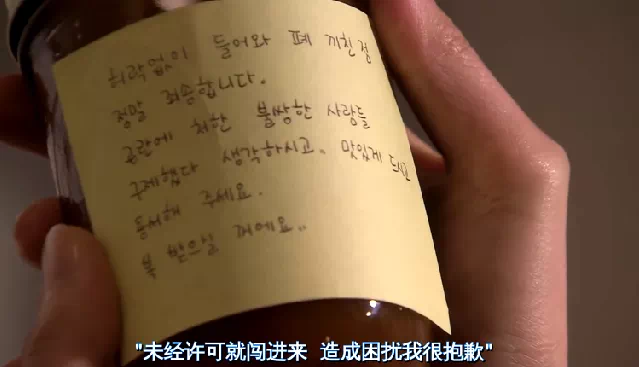 허락없이 들어와 폐 끼친점
정말 죄송합니다.
곤란에 처한 불쌍한 사람들
구제했다 생각하시고. 맛있게 드시고
용서해 주세요.
복 받으실 거에요.
"未经许可就闯进来 造成困扰我很抱歉"